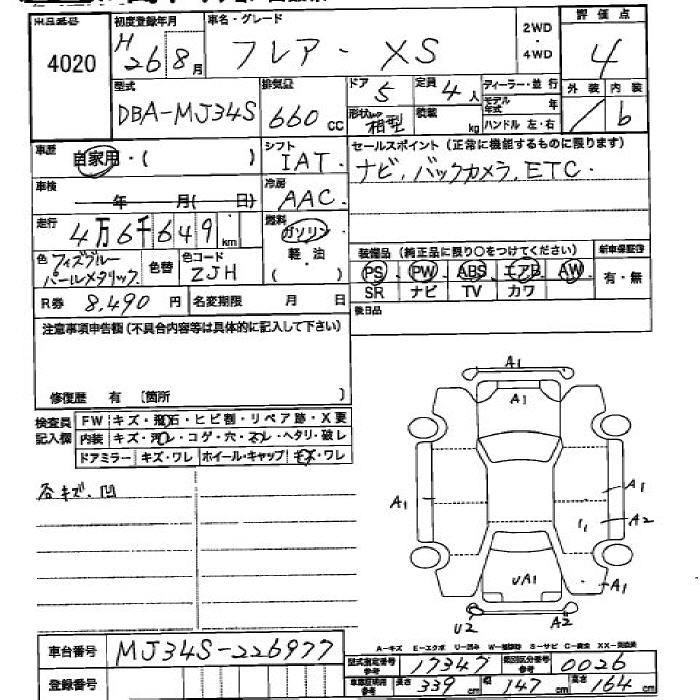 出品番号 初度登録年月 車名・グレード 2WD・4WD 評価点
4020 H26 8月 フレアー XS 4
型式 排気量 ドア 定員 ディーラー・並行 外装 内装
DBA-MJ34S 660 cc 5 4人 モデル年式 年 / b
形状 箱型 積載 kg ハンドル 左・右
車歴 自家用・( ) シフト IAT セールスポイント (正常に機能するものに限ります)
車検 年 月( 日) 冷房 AAC ナビ, バックカメラ, ETC
走行 4万6千649km 燃料 ガソリン 軽・油 ( )
装備品 (純正品に限り○をつけてください) 新車保証書
色 フィズブルーパールメタリック 色替 色コード ZJH
PS PW ABS エアB AW 有・無
SR ナビ TV カワ
R券 8,490 円 名変期限 月 日 後日品
注意事項申告欄 (不具合内容等は具体的に記入して下さい)
修復歴 有 (箇所 )
検査員記入欄 FW キズ・飛石・ヒビ割・リペア跡・X要
内装 キズ・汚レ・コゲ・穴・スレ・ヘタリ・破レ
ドアミラー キズ・ワレ ホイール・キャップ キズ・ワレ
各キズ. 凹
A1
A1
A1
A1
A2
UA1
A1
U2
A2
A-キズ E-エクボ U-凹み W-補修跡 S-サビ C-腐食 XX-交換済
車台番号 MJ34S-226977
型式指定番号 参考 17347 類別区分番号 参考 0026
登録番号 車庫証明用 参考 長さ 339 cm 幅 147 cm 高さ 164 cm